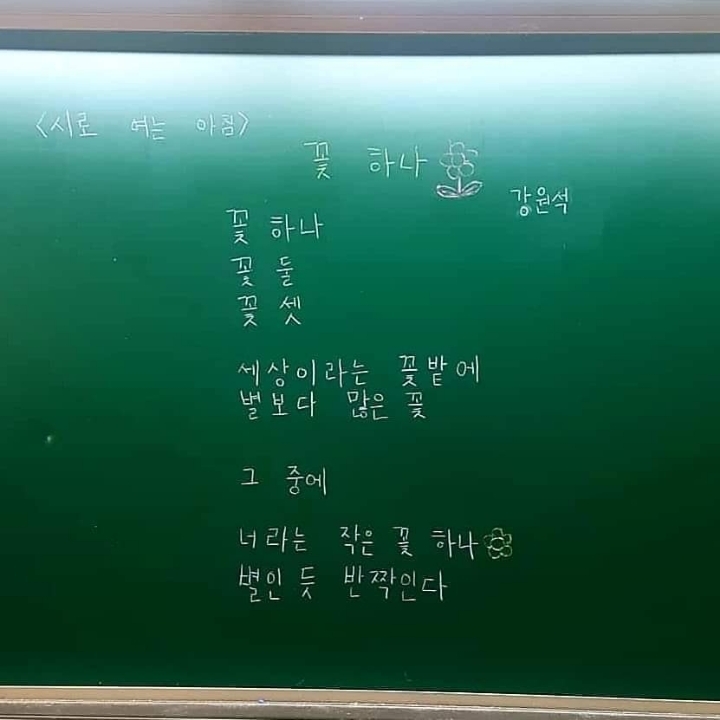 <시로 여는 아침>
꽃 하나
강원석
꽃 하나
꽃 둘
꽃 셋
세상이라는 꽃밭에
별보다 많은 꽃
그 중에
너라는 작은 꽃 하나
별인 듯 반짝인다